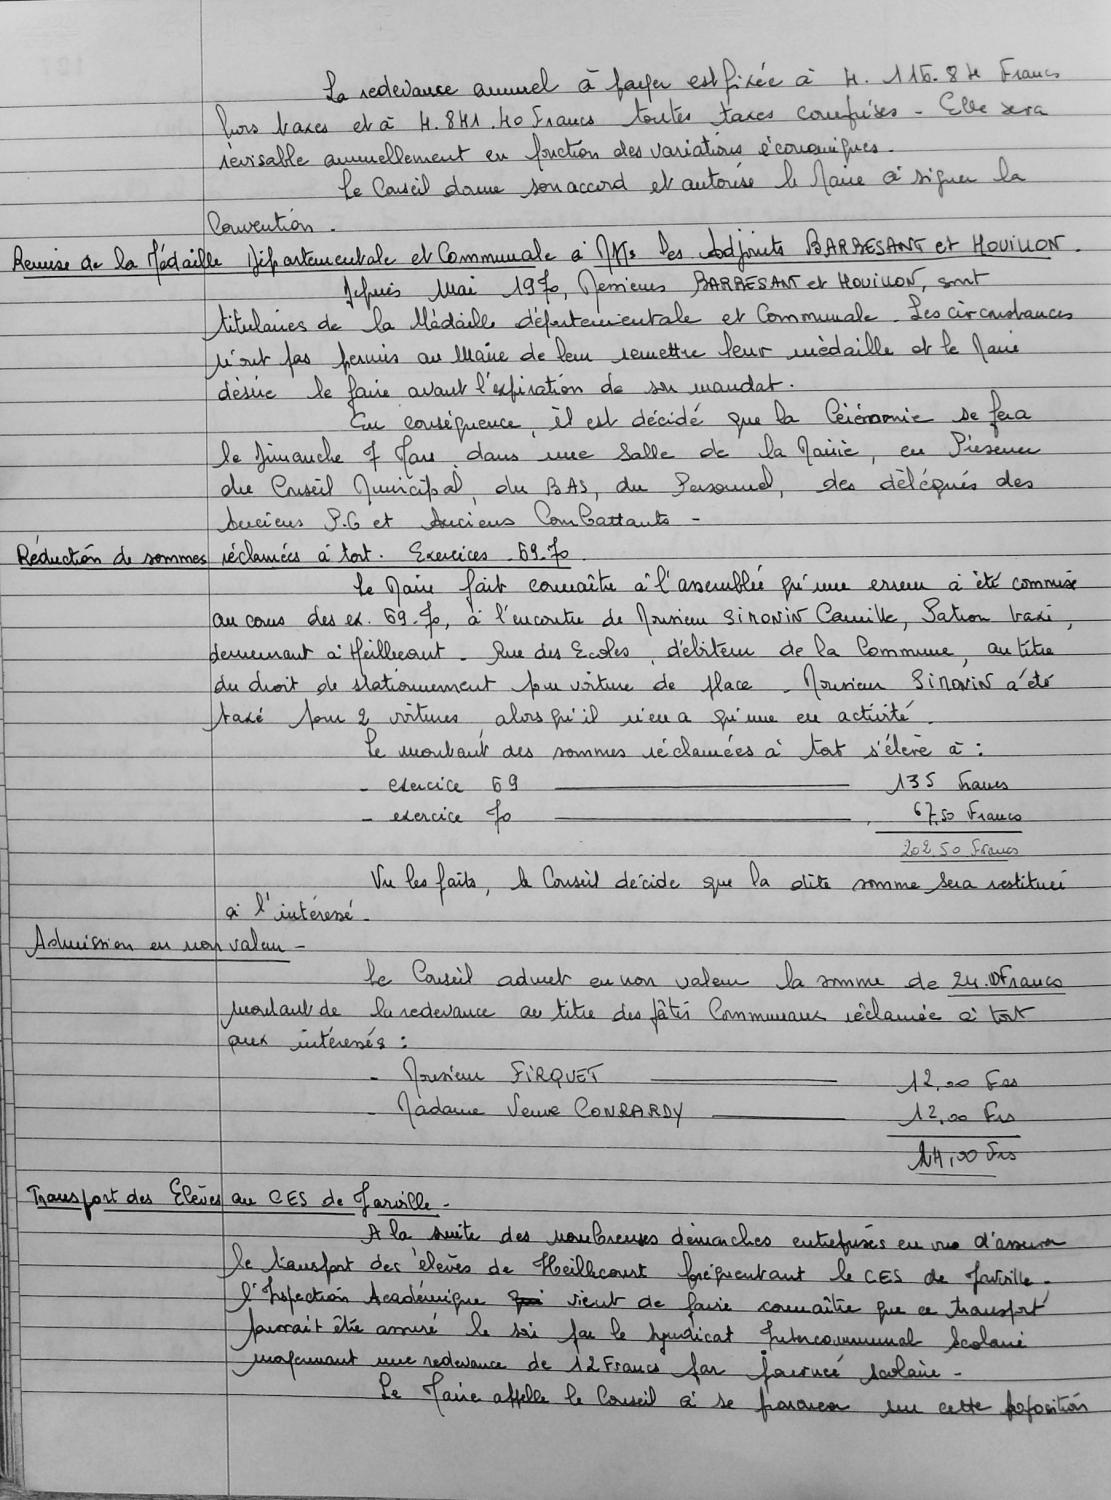 La redevance annuel à payer est fixée à 4.116.84 Francs
hors taxes et à 4.841.40 Francs toutes taxes comprises - Elle sera
révisable annuellement en fonction des variations économiques.
Le Conseil donne son accord et autorise le Maire à signer la
Convention.
Remise de la Médaille Départementale et Communale à MMs les Adjoints BARBESANT et HOUILLON.
Depuis Mai 1970, Messieurs BARBESANT et HOUILLON, sont
titulaires de la Médaille départementale et Communale. Les circonstances
n'ont pas permis au Maire de leur remettre leur médaille et le Maire
désire le faire avant l'expiration de son mandat.
En conséquence, il est décidé que la Cérémonie se fera
le Dimanche 7 Mars dans une Salle de la Mairie, en Présence
du Conseil Municipal, du BAS, du Personnel, des délégués des
Anciens P.G et Anciens Combattants -
Réduction de sommes réclamées à tort. Exercices 69.70.
Le Maire fait connaître à l'assemblée qu'une erreur a été commise
au cours des ex. 69.70, à l'encontre de Monsieur SIMONIN Camille, Patron taxi,
demeurant à Heillecourt - Rue des Ecoles, débiteur de la Commune, au titre
du droit de stationnement pour voiture de place. Monsieur SIMONIN a été
taxé pour 2 voitures alors qu'il n'en a qu'une en activité.
Le montant des sommes réclamées à tort s'élève à :
- exercice 69 135 Francs
- exercice 70 67,50 Francs
202.50 Francs
Vu les faits, le Conseil décide que la dite somme sera restituée
à l'intéressé.
Admission en non valeur -
Le Conseil admet en non valeur la somme de 24.00 Francs
montant de la redevance au titre des pâtis Communaux réclamée à tort
aux intéressés :
- Monsieur FIRQUET 12,00 Frs
- Madame Veuve CONRARDY 12,00 Frs
24,00 Frs
Transport des Elèves au CES de Jarville -
A la suite des nombreuses démarches entreprises en vue d'assurer
le transport des élèves de Heillecourt fréquentant le CES de Jarville.
l'Inspection Académique vient de faire connaître que ce transport
pourrait être assuré le soir par le Syndicat Intercommunal Scolaire
moyennant une redevance de 12 Francs par journée scolaire -
Le Maire appelle le Conseil à se prononcer sur cette proposition